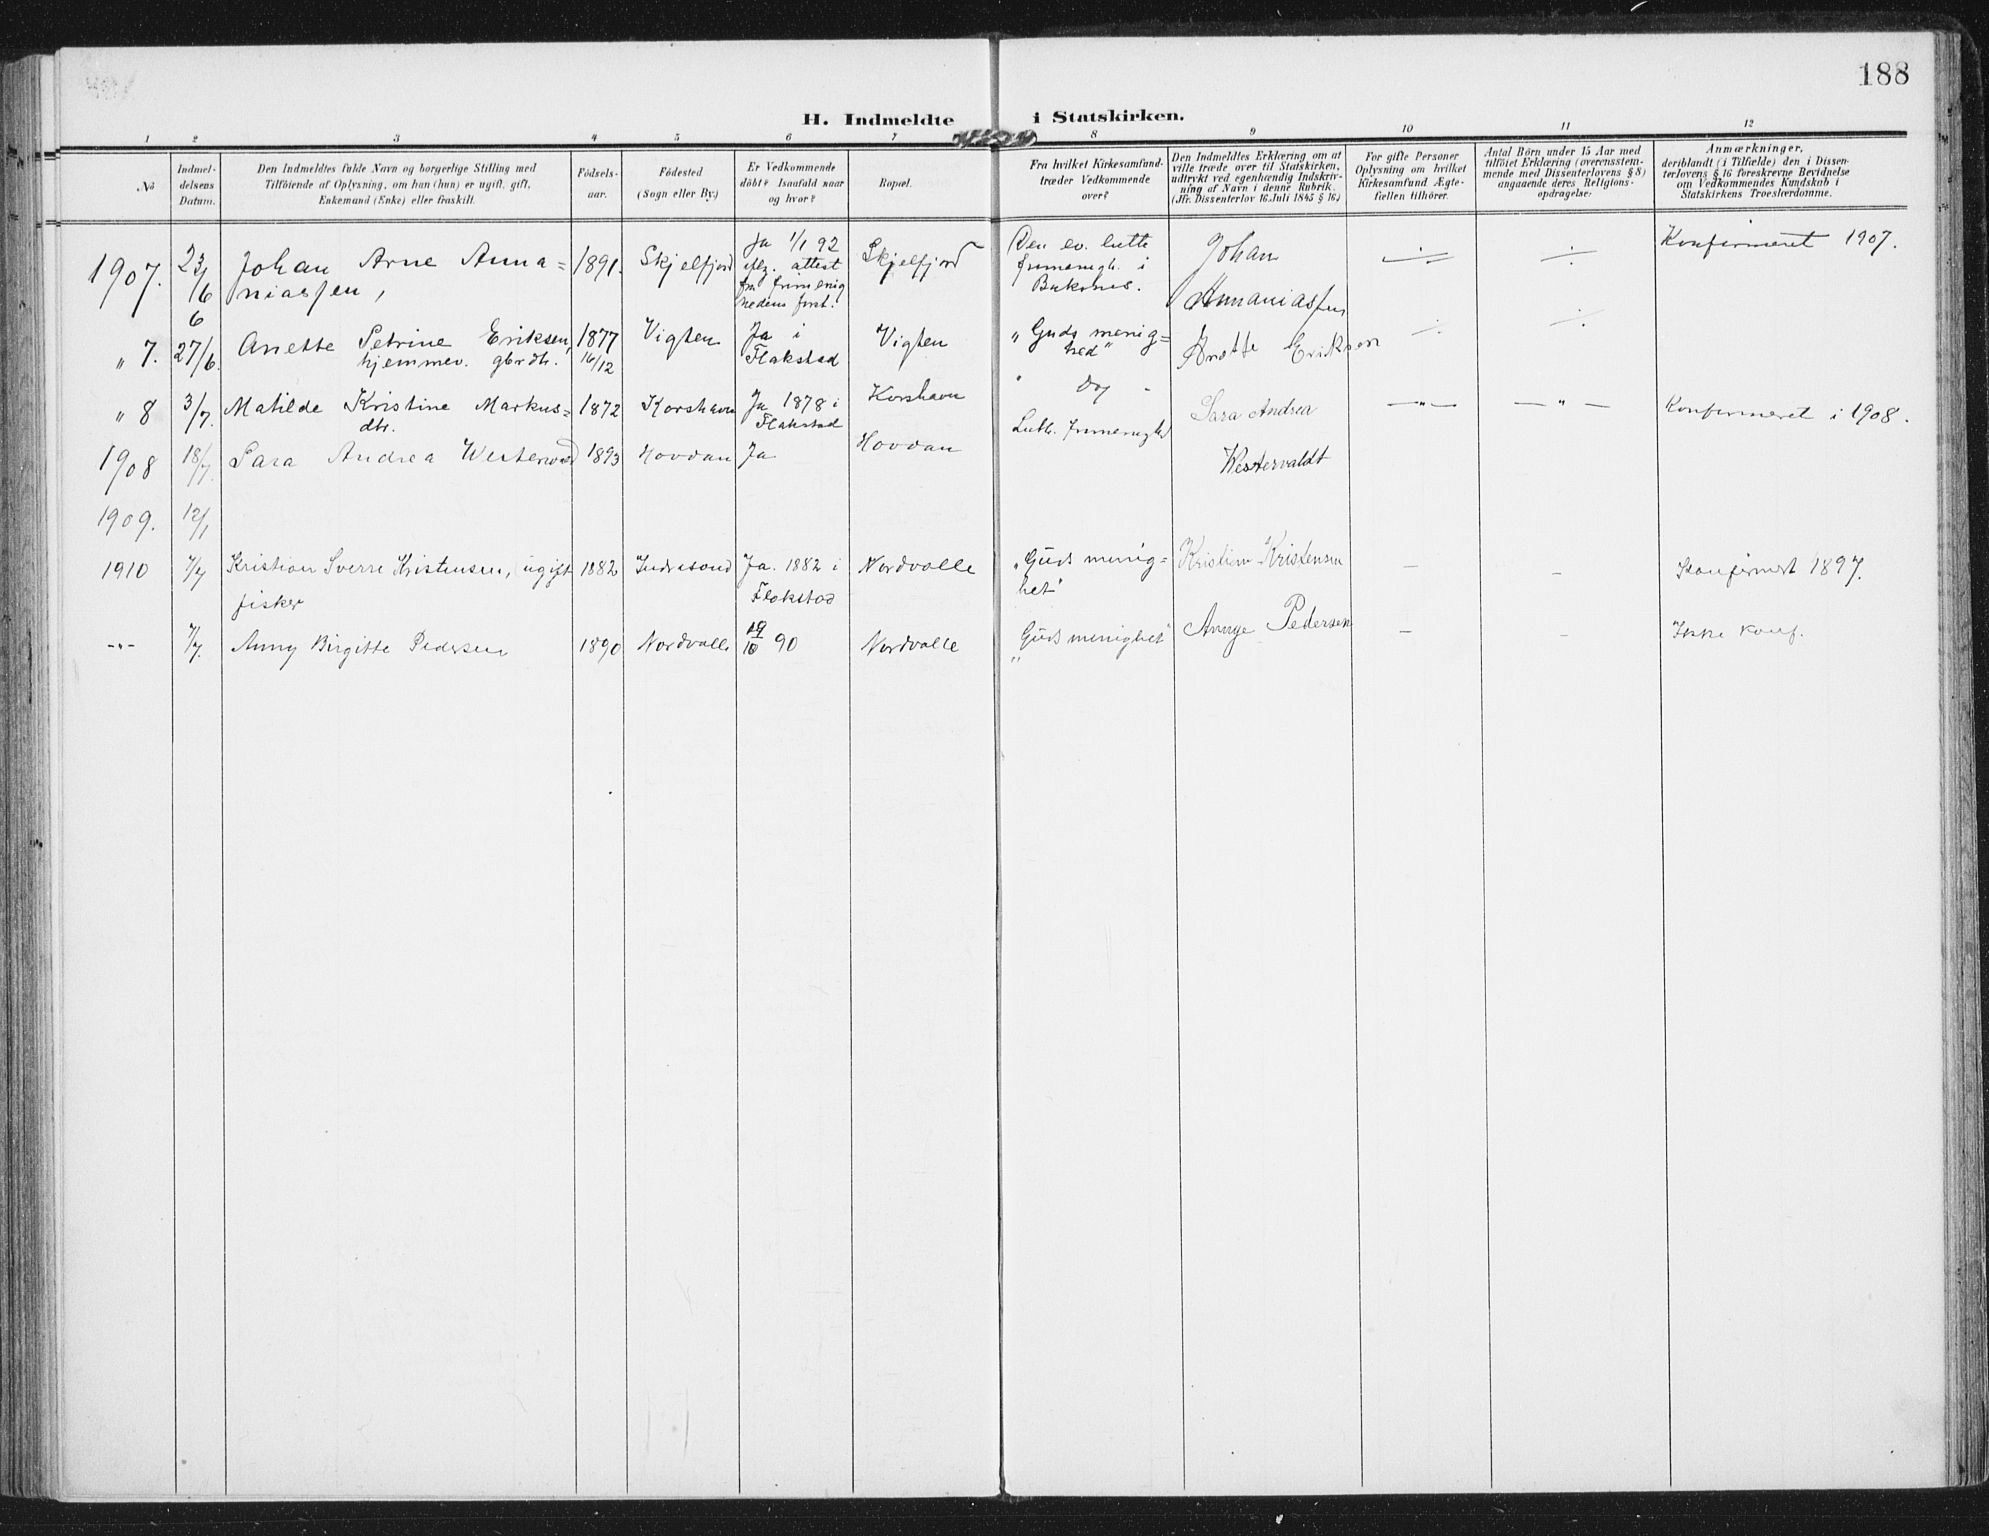 188
H. Indmeldte i Statskirken.
1 2 3 4 5 6 7 8 9 10 11 12
No
Indmel-
delsens
Datum.
Den Indmeldtes fulde Navn og borgerlige Stilling med
Tilföiende af Oplysning, om han (hun) er ugift, gift,
Enkemand (Enke) eller fraskilt.
Födsels-
aar.
Födested
(Sogn eller By.)
Er Vedkommende
döbt? Isaafald naar
og hvor?
Bopæl.
Fra hvilket Kirkesamfund
træder Vedkommende
over?
Den Indmeldtes Erklæring om at
ville træde over til Statskirken,
udtrykt ved egenhændig Indskriv-
ning af Navn i denne Rubrik.
(Jfr. Dissenterlov 16. Juli 1845 § 16.)
For gifte Personer
Oplysning om hvilket
Kirkesamfund Ægte-
fællen tilhörer.
Antal Börn under 15 Aar med
tilföiet Erklæring (overensstem-
mende med Dissenterlovens § 8)
angaaende deres Religions-
opdragelse.
Anmærkninger,
deriblandt (i Tilfælde) den i Dissen-
terlovens § 16 foreskrevne Bevidnelse
om Vedkommendes Kundskab i
Statskirkens Troeslærdomme.
1907. 23/6 Johan Arne Anna= 1891. Skjelfjord Ja 1/1 92 Skjelfjord Den ev. luth Johan ÷ ÷ Konfirmeret 1907.
niassen, iflg. attest frimenigh. i
fra frimenig Buksnes. Annaniassen
hedens forst.
" 7. 27/6. Anette Petrine Eriksen, 1877 Vigten Ja i Vigten "Guds menig= Anette Eriksen ÷ ÷
hjemmev. gbrdtr. 16/12 Flakstad hed"
" 8 3/7. Matilde Kristine Markus= 1872 Korshavn Ja 1878 i Korshavn " Do -
dtr. Flakstad
1908 18/7. Sara Andrea Westerwald 1893 Hovdan Ja Hovdan Luth. frimenighed Sara Andrea — " — — " — Konfirmeret i 1908.
Westervaldt
1909. 12/1
1910 7/7 Kristian Sverre Kristensen, ugift 1882 Indresand Ja. 1882 i Nordvolle "Guds menig= Kristian Kristensen – – Konfirmert 1897.
fisker Flakstad het"
-"- 7/7. Anny Birgitte Pedersen 1890 Nordvolle 19/10 90 Nordvolle "Guds menighet" Annye Pedersen – – Ikke konf.